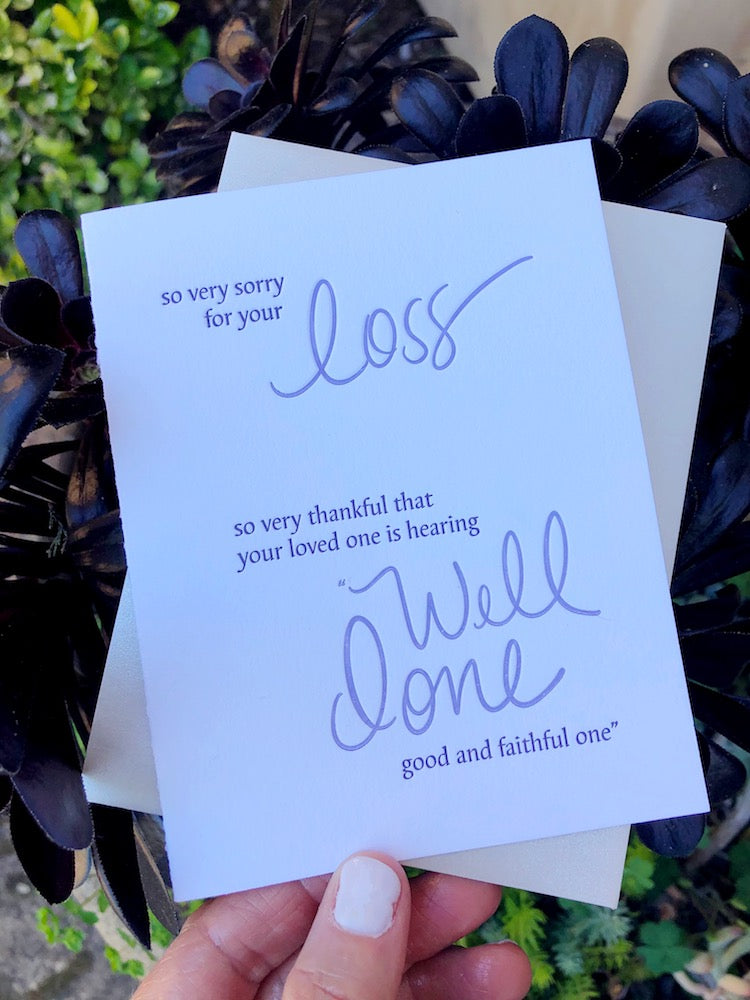 so very sorry
for your loss
so very thankful that
your loved one is hearing
“Well
done
good and faithful one”